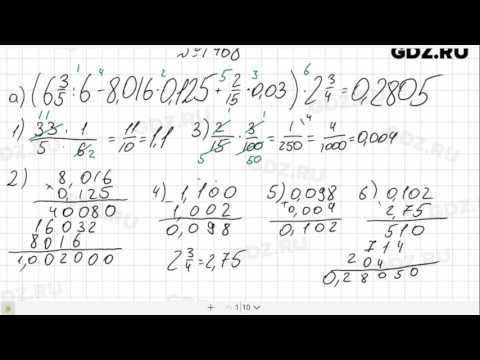 №1708
GDZ.RU
1 4 2 5 3 6
а) (6 3/5 : 6 - 8,016 · 0,125 + 2/15 · 0,03) · 2 3/4 = 0,2805
1) 33/5 · 1/6 = 11/10 = 1,1 3) 2/15 · 3/100 = 1/250 = 4/1000 = 0,004
2) × 8,016
0,125
40080
16032
8016
1,002000
4) - 1,100
1,002
0,098
2 3/4 = 2,75
5) + 0,098
0,004
0,102
6) × 0,102
2,75
510
714
204
0,28050
1 / 10